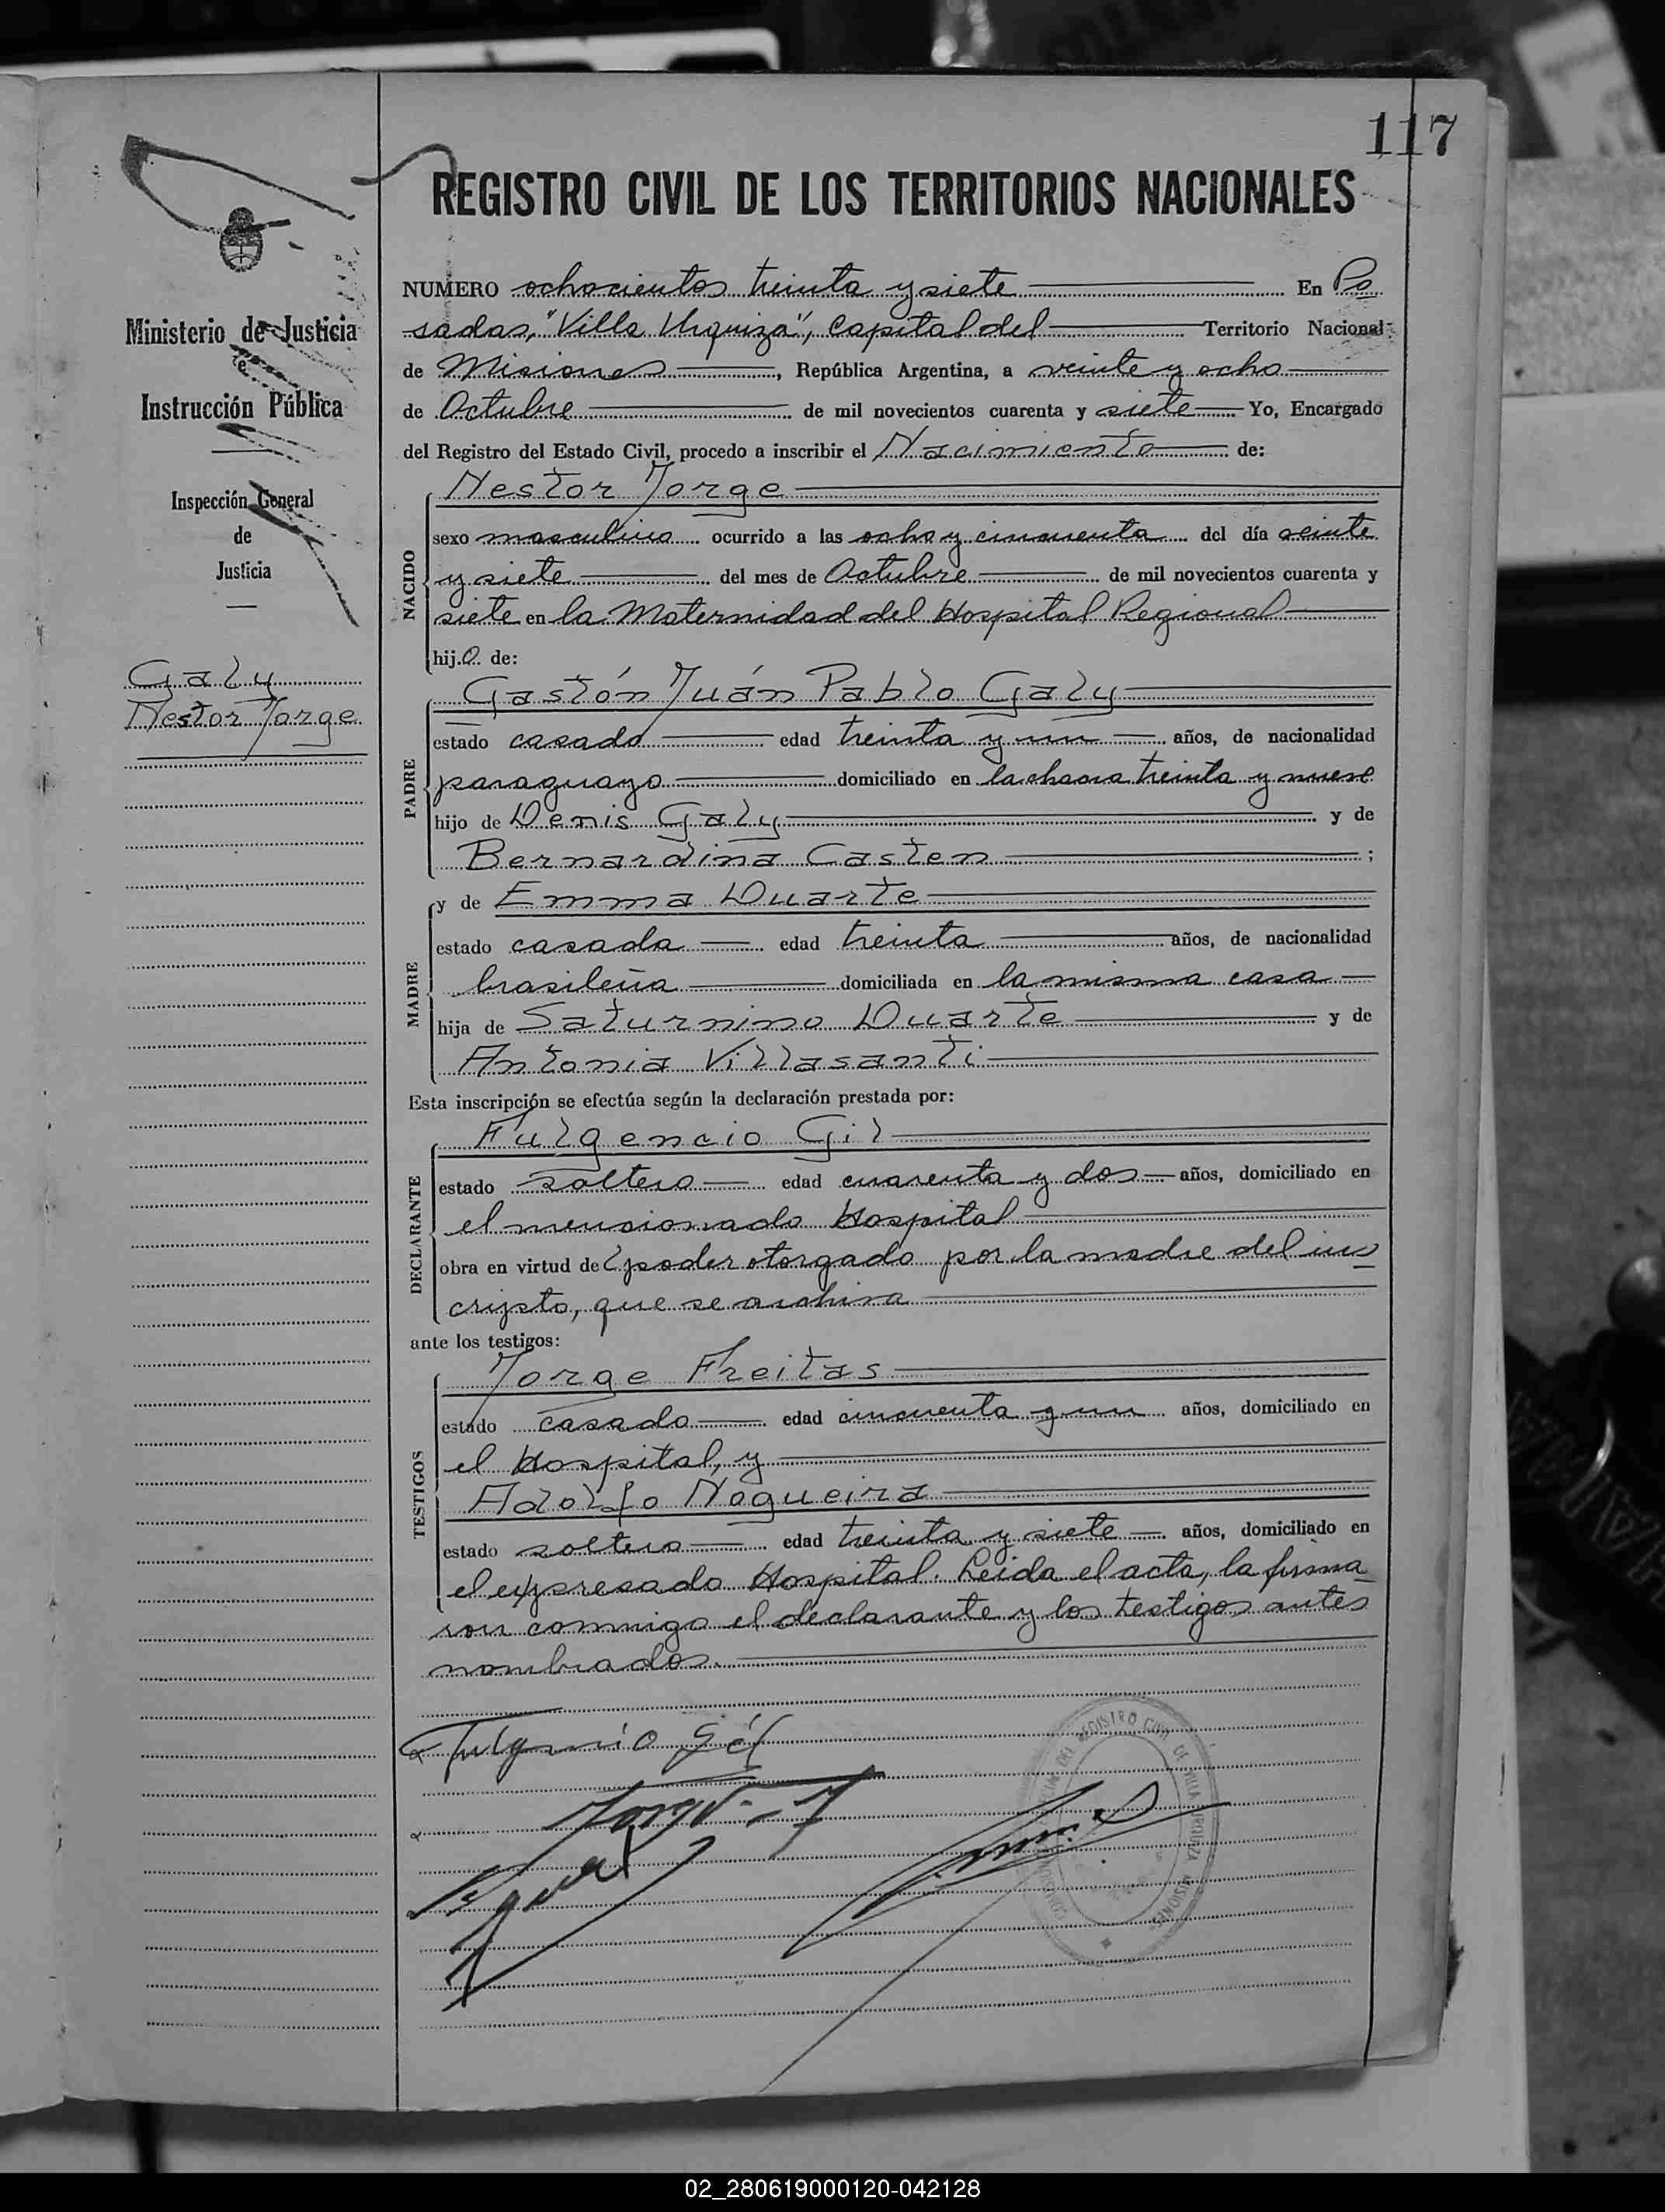 117
REGISTRO CIVIL DE LOS TERRITORIOS NACIONALES
Ministerio de Justicia
e
Instrucción Pública
Inspección General
de
Justicia
Galy
Nestor Jorge
NUMERO ochocientos treinta y siete En Po
sadas, "Villa Urquiza", Capital del Territorio Nacional
de Misiones, República Argentina, a veinte y ocho
de Octubre de mil novecientos cuarenta y siete Yo, Encargado
del Registro del Estado Civil, procedo a inscribir el Nacimiento de:
NACIDO
Nestor Jorge
sexo masculino ocurrido a las ocho y cincuenta del día veinte
y siete del mes de Octubre de mil novecientos cuarenta y
siete en la Maternidad del Hospital Regional
hij.o de:
PADRE
Gastón Juán Pablo Galy
estado casado edad treinta y un años, de nacionalidad
paraguayo domiciliado en la chacra treinta y nueve
hijo de Denis Galy y de
Bernardina Casten ;
MADRE
y de Emma Duarte
estado casada edad treinta años, de nacionalidad
brasileña domiciliada en la misma casa
hija de Saturnino Duarte y de
Antonia Villasanti
Esta inscripción se efectúa según la declaración prestada por:
DECLARANTE
Fulgencio Gil
estado soltero edad cuarenta y dos años, domiciliado en
el mencionado Hospital
obra en virtud de poder otorgado por la madre del ins
cripto, que se archiva
ante los testigos:
TESTIGOS
Jorge Freitas
estado casado edad cincuenta y un años, domiciliado en
el Hospital, y
Adolfo Nogueira
estado soltero edad treinta y siete años, domiciliado en
el expresado Hospital. Leida el acta, la firma
ron conmigo el declarante y los testigos antes
nombrados.
Fulgencio Gil
Jorge
REGISTRO CIVIL DE VILLA URQUIZA MISIONES
02_280619000120-042128